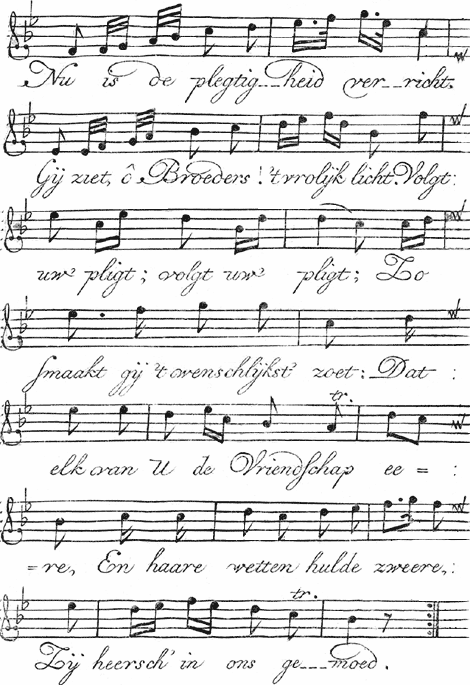 Nu is de plegtig---heid ver--richt.
Gij ziet, ô Broeders! 't vrolijk licht. Volgt:
uw' pligt; volgt uw' pligt; Zo
smaakt gij 't wenschlijkst' zoet: Dat:
tr.
elk van U de Vriendschap ee=:
=re, En haare wetten hulde zweere,:
tr.
Zij heersch' in ons ge---moed.